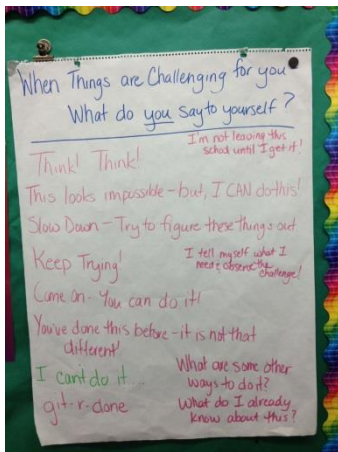 When Things are Challenging for you
What do you say to yourself?
I'm not leaving this
school until I get it!
Think! Think!
This looks impossible - but, I CAN do this!
Slow Down - Try to figure these things out
Keep Trying!
I tell myself what I
need & observe the
challenge!
Come on - You can do it!
You've done this before - it is not that
different!
I can't do it....
git-r-done
What are some other
ways to do it?
What do I already
know about this?